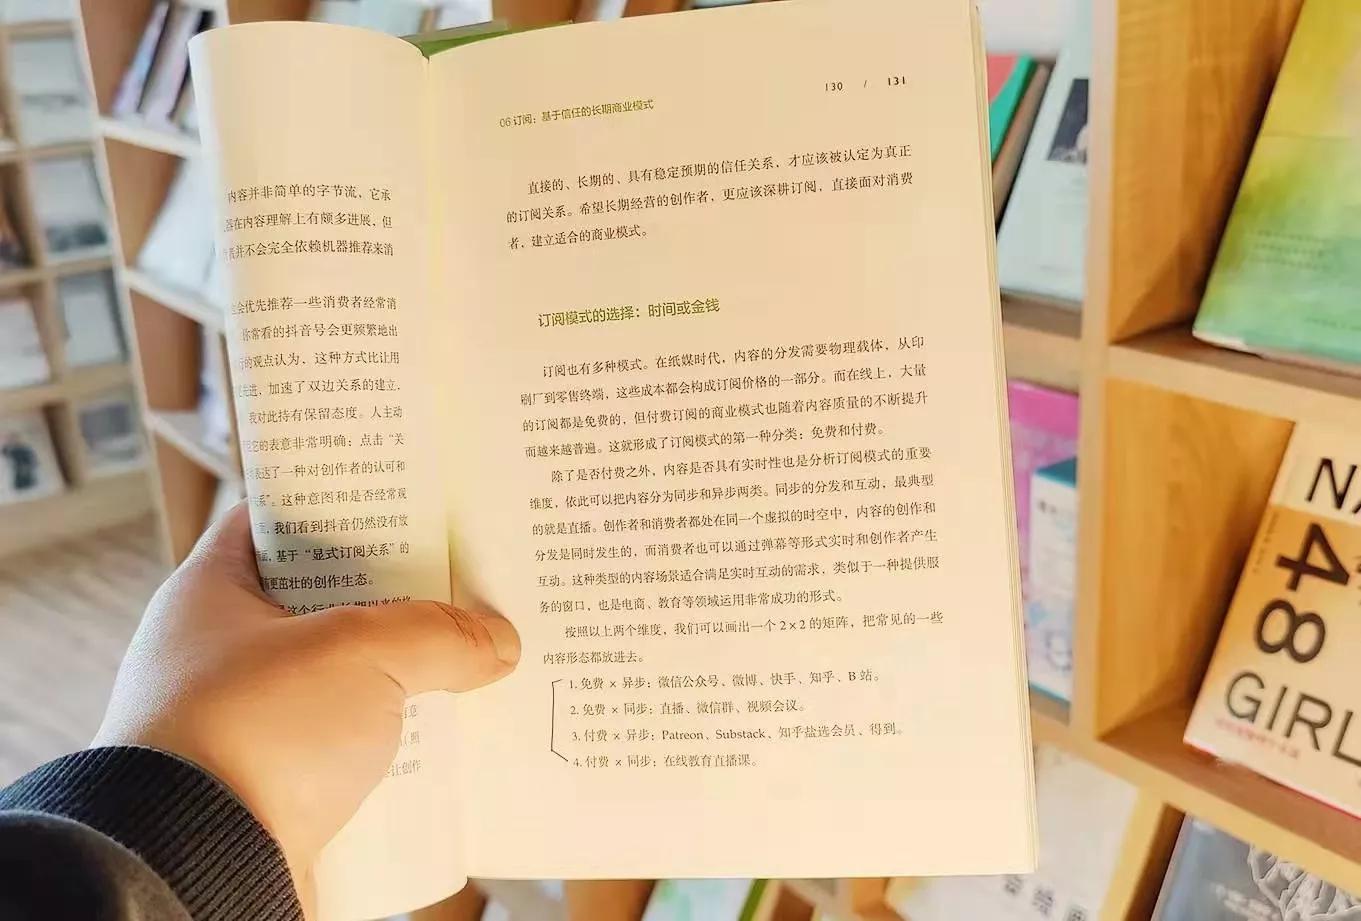 内容并非简单的字节流，它承
器在内容理解上有颇多进展，但
者并不会完全依赖机器推荐来消
会优先推荐一些消费者经常消
你常看的抖音号会更频繁地出
行的观点认为，这种方式比让用
先进，加速了双边关系的建立，
我对此持有保留态度。人主动
它的表意非常明确：点击“关
表达了一种对创作者的认可和
关系”。这种意图和是否经常观
面，我们看到抖音仍然没有放
面，基于“显式订阅关系”的
更茁壮的创作生态。
是这个行业长期以来的
有意
（照
让创作
06 订阅：基于信任的长期商业模式
130 / 131
直接的、长期的、具有稳定预期的信任关系，才应该被认定为真正
的订阅关系。希望长期经营的创作者，更应该深耕订阅，直接面对消费
者，建立适合的商业模式。
订阅模式的选择：时间或金钱
订阅也有多种模式。在纸媒时代，内容的分发需要物理载体，从印
刷厂到零售终端，这些成本都会构成订阅价格的一部分。而在线上，大量
的订阅都是免费的，但付费订阅的商业模式也随着内容质量的不断提升
而越来越普遍。这就形成了订阅模式的第一种分类：免费和付费。
除了是否付费之外，内容是否具有实时性也是分析订阅模式的重要
维度，依此可以把内容分为同步和异步两类。同步的分发和互动，最典型
的就是直播。创作者和消费者都处在同一个虚拟的时空中，内容的创作和
分发是同时发生的，而消费者也可以通过弹幕等形式实时和创作者产生
互动。这种类型的内容场景适合满足实时互动的需求，类似于一种提供服
务的窗口，也是电商、教育等领域运用非常成功的形式。
按照以上两个维度，我们可以画出一个 2×2 的矩阵，把常见的一些
内容形态都放进去。
1. 免费 × 异步：微信公众号、微博、快手、知乎、B 站。
2. 免费 × 同步：直播、微信群、视频会议。
3. 付费 × 异步：Patreon、Substack、知乎盐选会员、得到。
4. 付费 × 同步：在线教育直播课。
48
GIRL